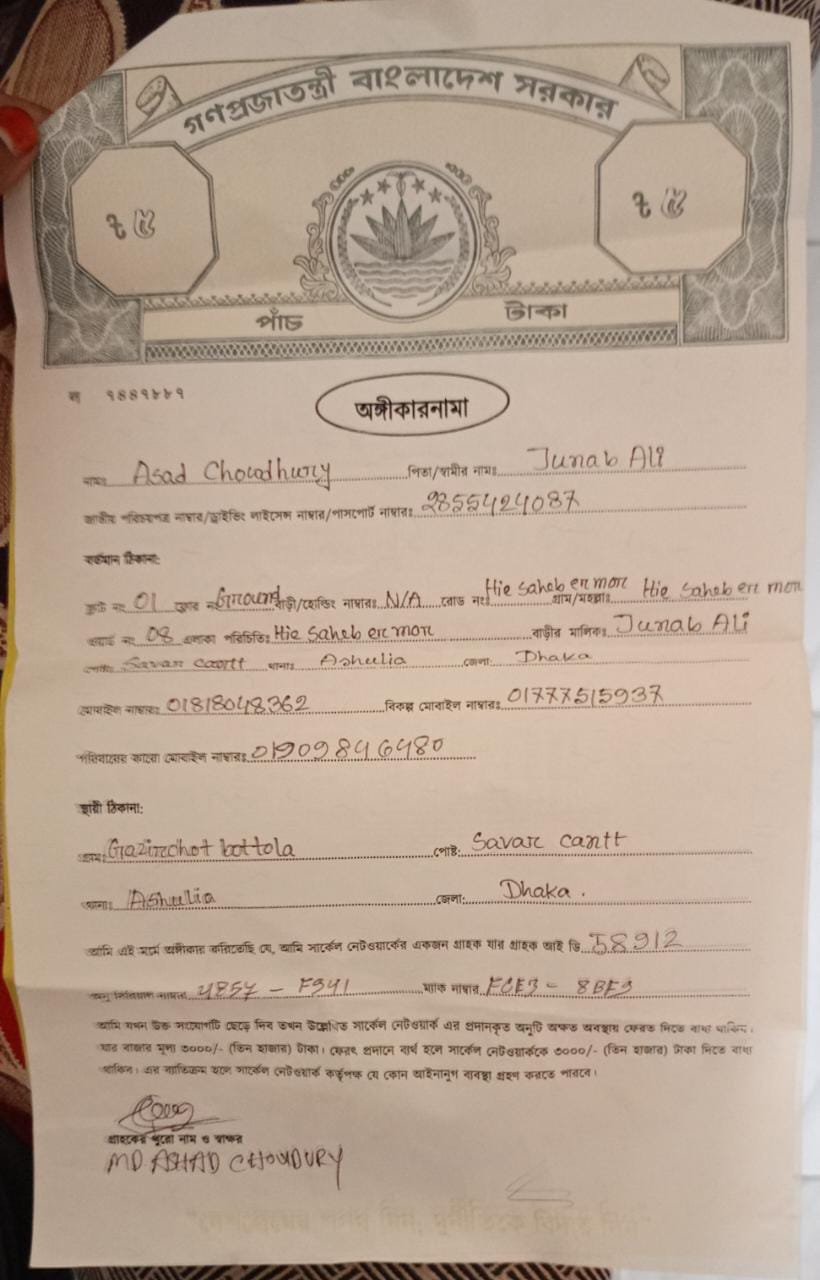 গণপ্রজাতন্ত্রী বাংলাদেশ সরকার
৳ ৫ ৳ ৫
পাঁচ টাকা
অঙ্গীকারনামা
নামঃ Asad Chowdhury পিতা/স্বামীর নামঃ Junab Ali
জাতীয় পরিচয়পত্র নাম্বার/ড্রাইভিং লাইসেন্স নাম্বার/পাসপোর্ট নাম্বারঃ 2855424087
বর্তমান ঠিকানা:
ফ্লাট নং 01 ফ্লোর নং Ground বাড়ী/হোল্ডিং নাম্বারঃ N/A রোড নং Hie saheb er mor গ্রাম/মহল্লাঃ Hie Saheb er mor
ওয়ার্ড নং 08 এলাকা পরিচিতিঃ Hie Saheb er mor বাড়ীর মালিকঃ Junab Ali
পোষ্টঃ Savar cantt থানাঃ Ashulia জেলা: Dhaka
মোবাইল নাম্বারঃ 01818048362 বিকল্প মোবাইল নাম্বারঃ 01777515937
পরিবারের কারো মোবাইল নাম্বারঃ 01909846480
স্থায়ী ঠিকানা:
গ্রামঃ Gazirchot bottola পোষ্ট: Savar cantt
থানাঃ Ashulia জেলা: Dhaka.
আমি এই মর্মে অঙ্গীকার করিতেছি যে, আমি সার্কেল নেটওয়ার্কের একজন গ্রাহক যার গ্রাহক আই ডি 58912
অনু সিরিয়াল নাম্বার 4857 - F941 ম্যাক নাম্বার FCE3 - 8BF9
আমি যখন উক্ত সংযোগটি ছেড়ে দিব তখন উল্লেখিত সার্কেল নেটওয়ার্ক এর প্রদানকৃত অনুটি অক্ষত অবস্থায় ফেরত দিতে বাধ্য থাকিব।
যার বাজার মূল্য ৩০০০/- (তিন হাজার) টাকা। ফেরৎ প্রদানে ব্যর্থ হলে সার্কেল নেটওয়ার্ককে ৩০০০/- (তিন হাজার) টাকা দিতে বাধ্য
থাকিব। এর ব্যতিক্রম হলে সার্কেল নেটওয়ার্ক কর্তৃপক্ষ যে কোন আইনানুগ ব্যবস্থা গ্রহণ করতে পারবে।
গ্রাহকের পুরো নাম ও স্বাক্ষর
MD ASHAD CHOUDURY